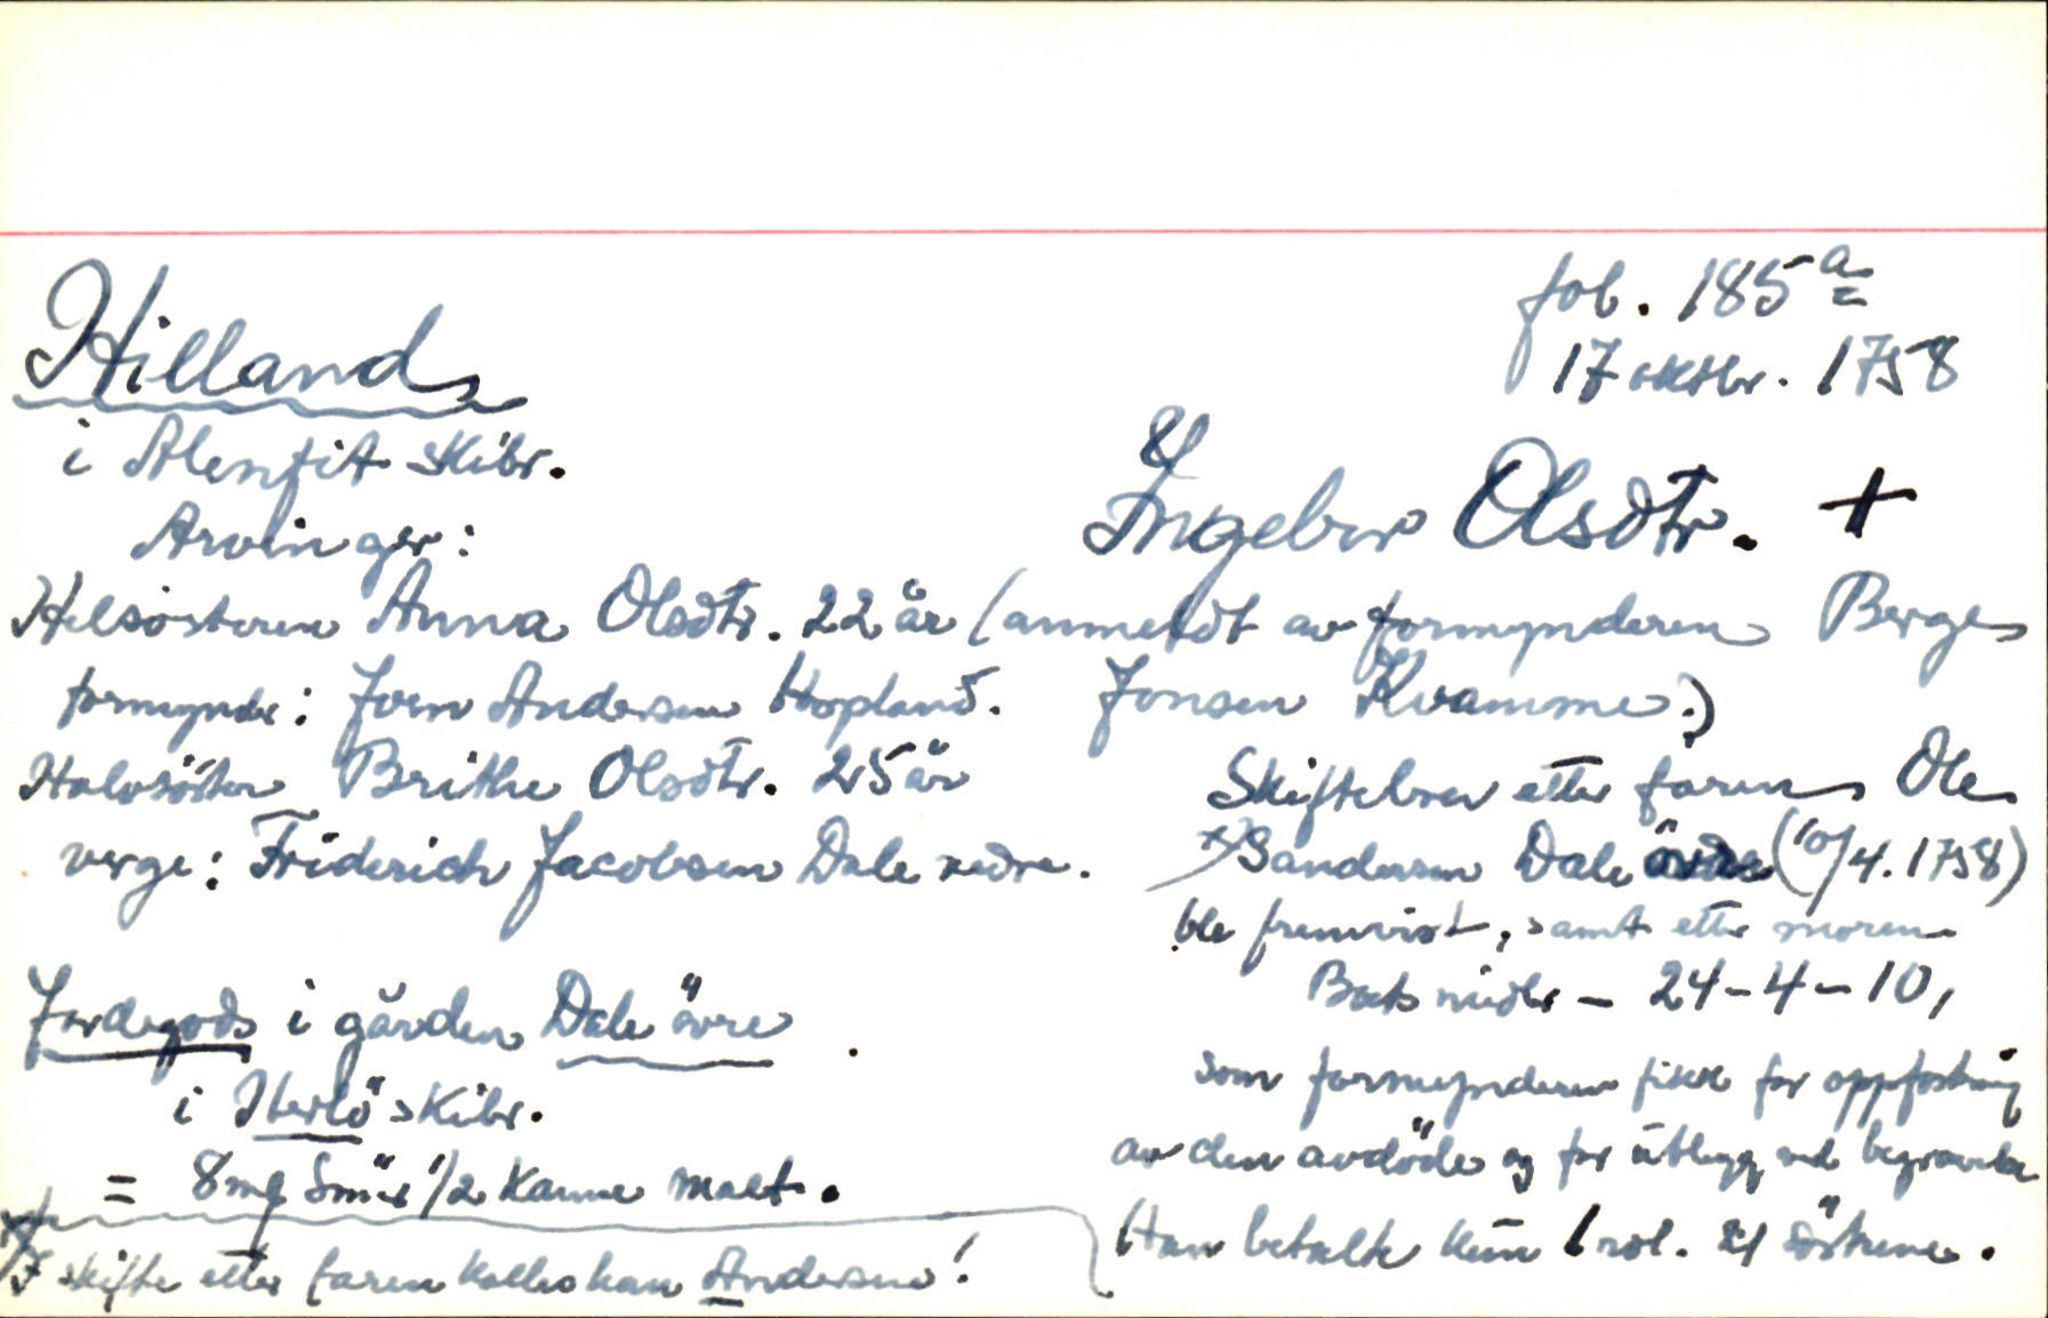 fol. 185 a
17 oktbr. 1758
Hilland
i Alenfit skibr.
Arvinger:
Ingebor Olsdtr. +
Helsösteren Anna Olsdtr. 22 år (anmeldt av formynderen Berge
formynder: Joen Andersen Hopland. Jonsen Kvamme.)
Halvsöster Brithe Olsdtr. 25 år
verge: Friderich Jacobsen Dale nedre.
Skiftebrev etter faren Ole
x) Sandersen Dale övre (10/4. 1758)
ble fremvist, samt etter moren
Boets midler - 24-4-10,
som formynderen fikk for oppfostring
av den avdöde og for utlegg ved begravelse
Han betalte kun 1 rdl. til söstrene.
Jordegods i gården Dale övre
i Herlö skibr.
= 8 mf Smör 1/2 kanne malt.
x) I skifte etter faren kalles han Andersen!